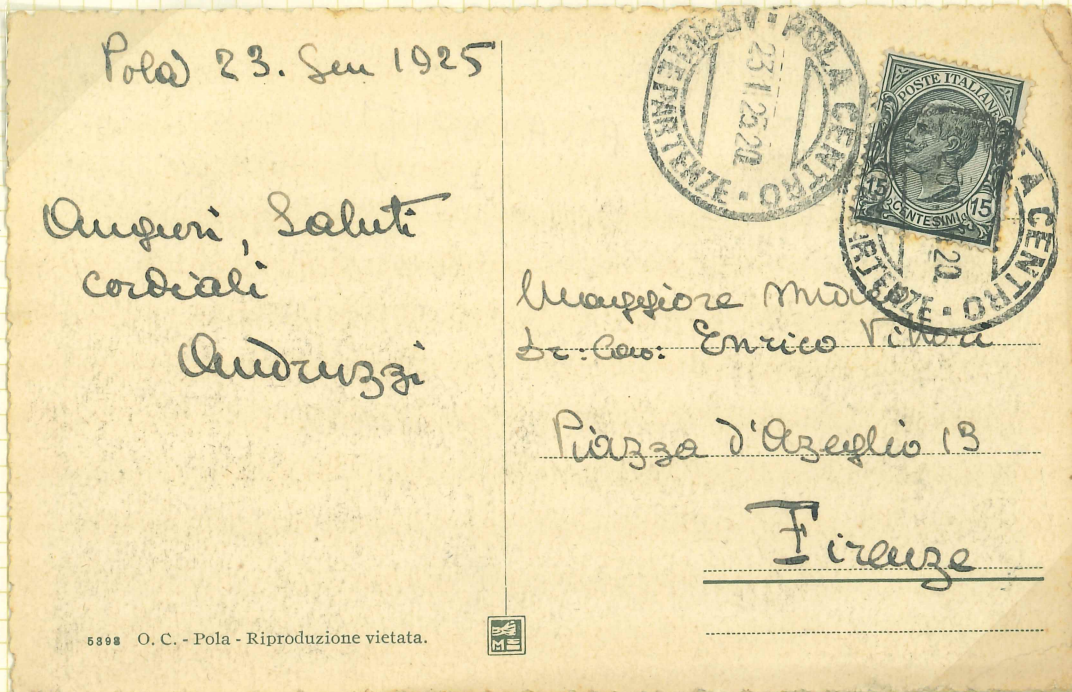 Pola 23. Gen 1925
Auguri, Saluti
cordiali
Andruzzi
POLA CENTRO
PARTENZE
23.1.25.20
POSTE ITALIANE
15 CENTESIMI 15
A CENTRO
20
Maggiore
Dr: Cav: Enrico Vittori
Piazza d'Azeglio 13
Firenze
5398 O. C. - Pola - Riproduzione vietata.